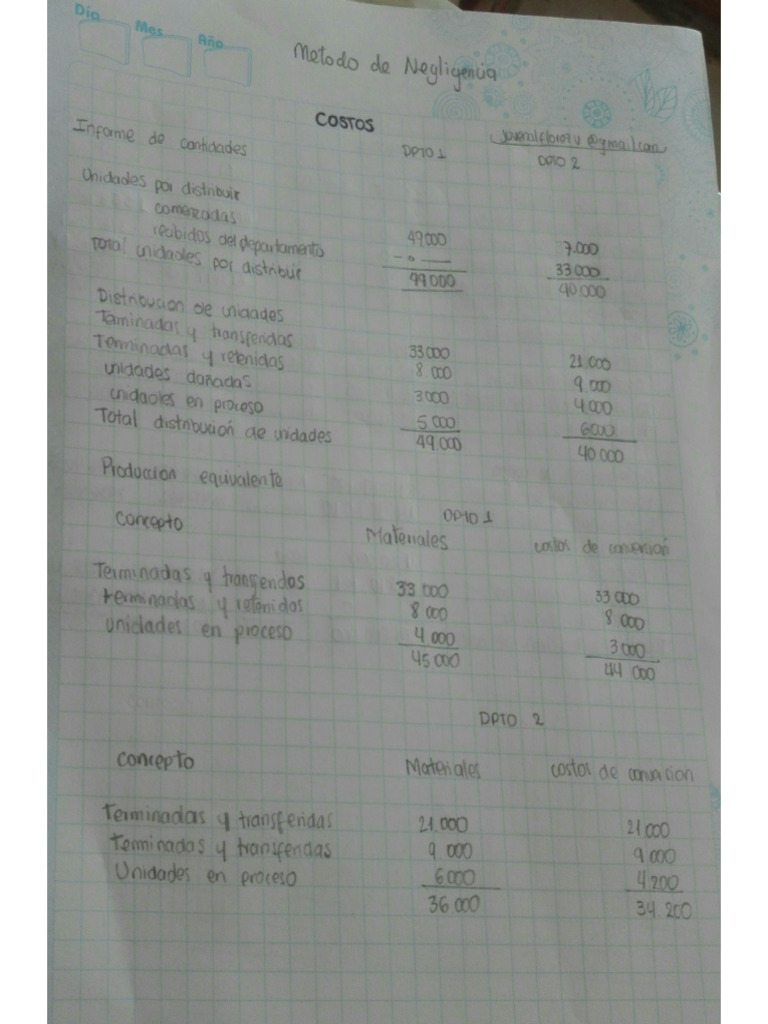 Día
Mes
Año
Metodo de Negligencia
COSTOS
Informe de cantidades DPTO 1 DPTO 2
Unidades por distribuir
comenzadas 49.000 7.000
recibidos del departamento 33000
Total unidades por distribuir 49000 40000
Distribucion de unidades
Terminadas y transferidas 33000 21.000
Terminadas y retenidas 8 000 9 000
unidades dañadas 3000 4.000
unidades en proceso 5.000 6000
Total distribución de unidades 49.000 40 000
Produccion equivalente
DPTO 1
Concepto Materiales costos de conversión
Terminadas y transferidos 33 000 33 000
terminadas y retenidas 8 000 8 000
unidades en proceso 4 000 3 000
45 000 44 000
DPTO 2
Concepto Materiales costos de
Terminadas y transferidas 21.000 21 000
Terminadas y transferidas 9 000 9 000
Unidades en proceso 6000 4200
36 000 34.200